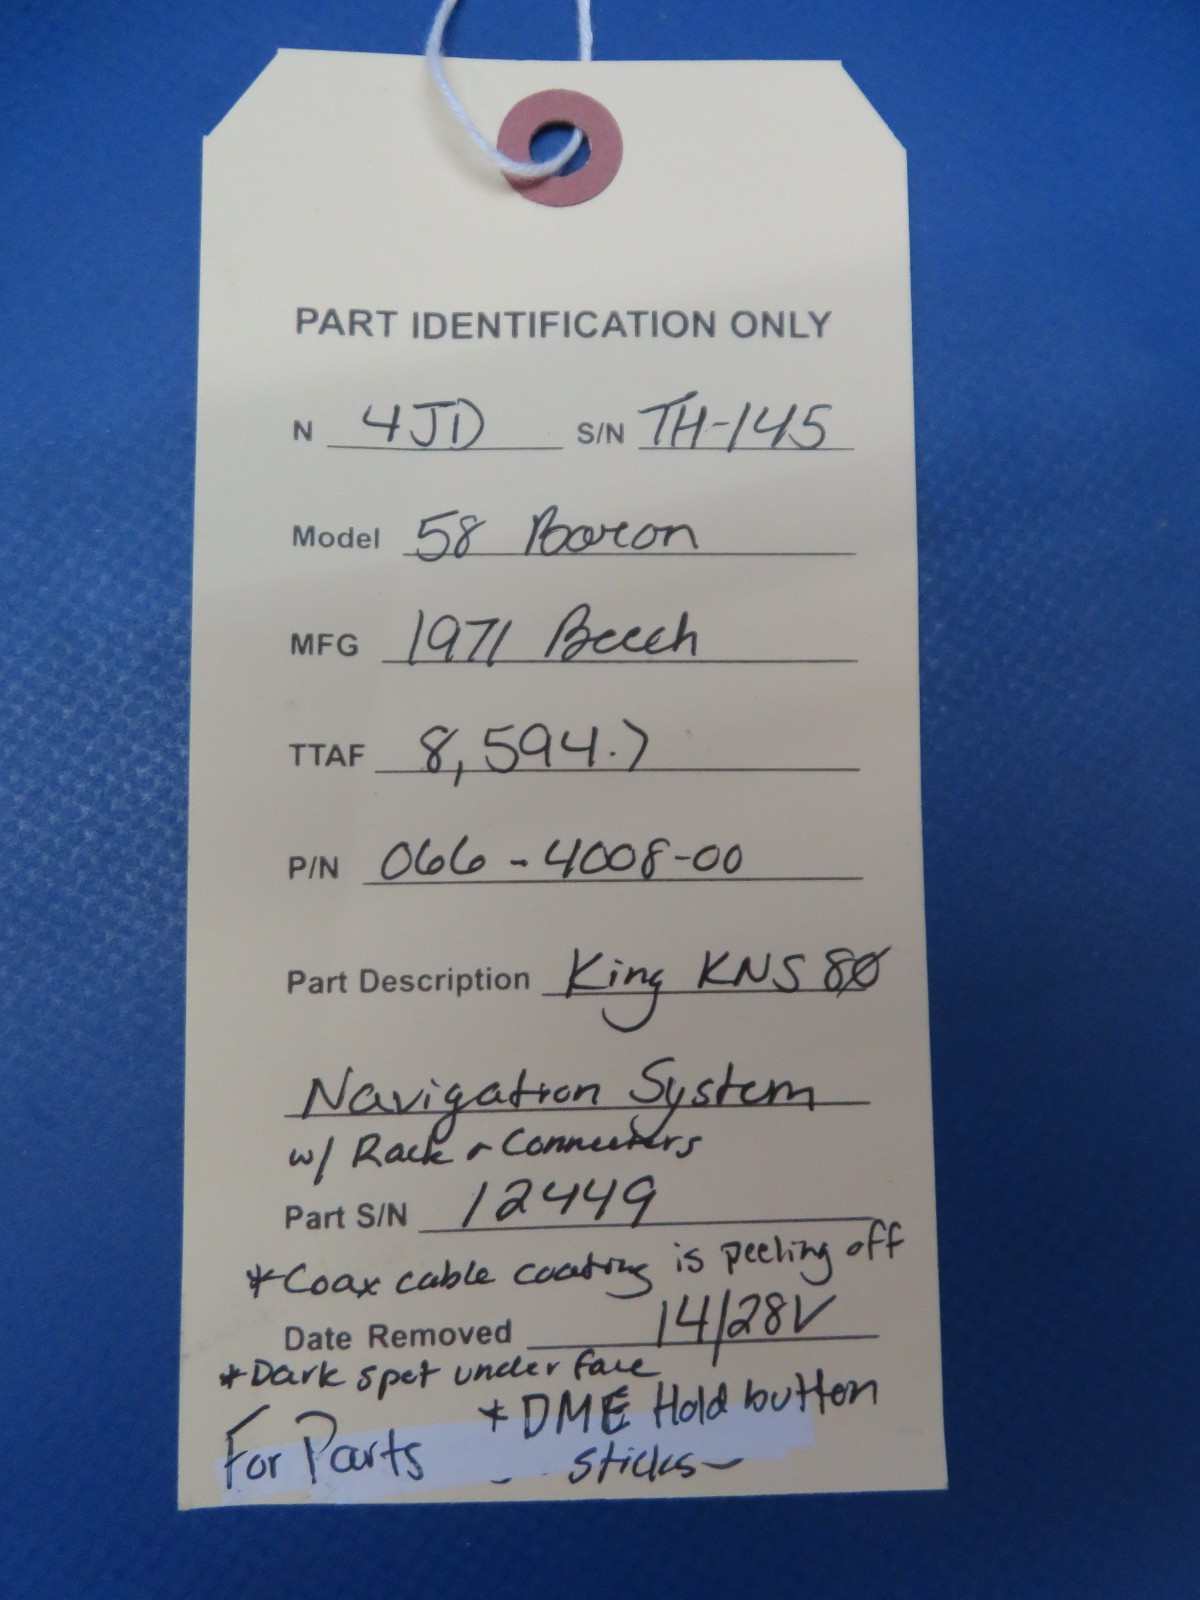 PART IDENTIFICATION ONLY
N 4JD S/N TH-145
Model 58 Baron
MFG 1971 Beech
TTAF 8,594.7
P/N 066-4008-00
Part Description King KNS 80
Navigation System
w/ Rack & Connecters
Part S/N 12449
*Coax cable coating is peeling off
Date Removed 14/28V
*Dark spot under face
*DME Hold button
For Parts sticks